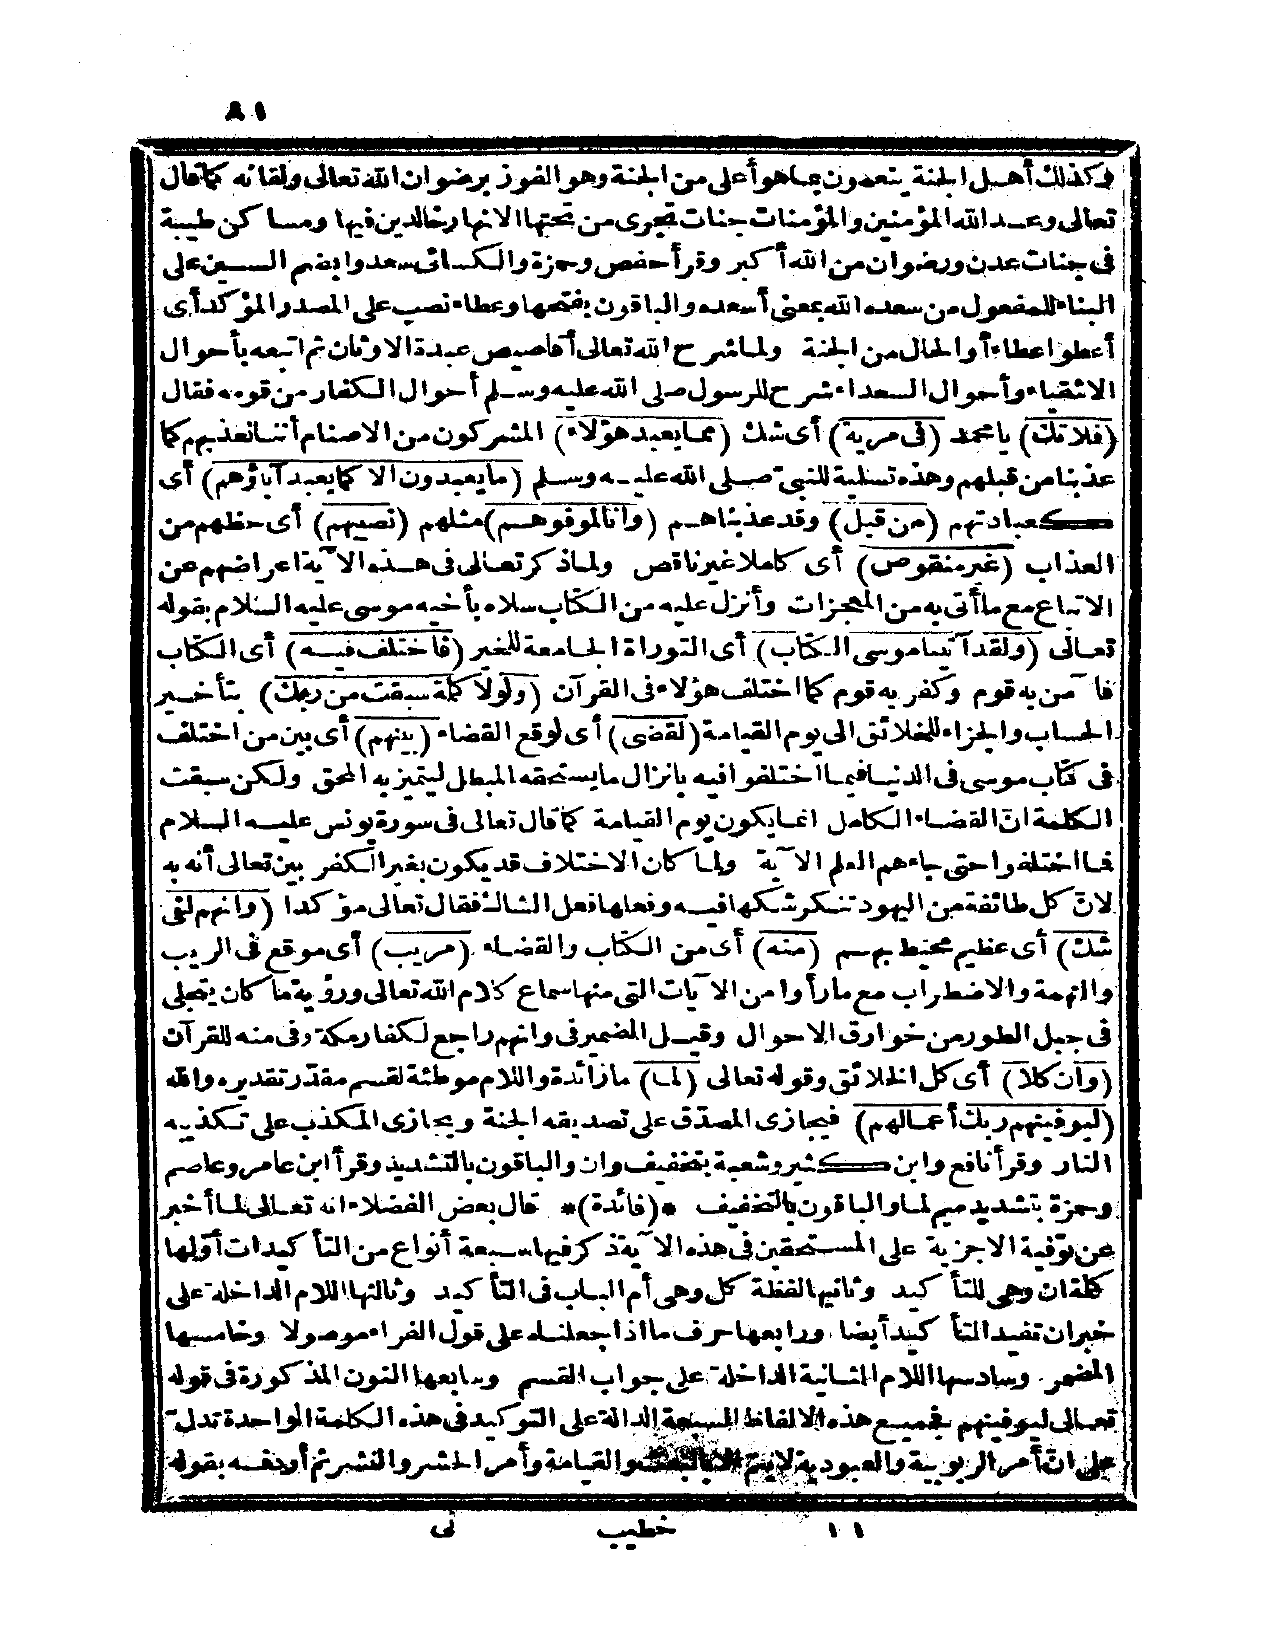 ٨١
فكذلك أهل الجنة يتعدون بما هو أعلى من الجنة وهو الفوز برضوان الله تعالى ولقائه كما قال
تعالى وعد الله المؤمنين والمؤمنات جنات تجرى من تحتها الانهار خالدين فيها ومساكن طيبة
فى جنات عدن ورضوان من الله أكبر وقرأ حفص وحمزة والكسائى سعدوا بضم السين على
البناء للمفعول من سعده الله بمعنى أسعده والباقون بفتحها وعطاء نصب على المصدر المؤكد أى
أعطوا عطاء أو الحال من الجنة ولما شرح الله تعالى أقاصيص عبدة الاوثان ثم اتبعه بأحوال
الاشقياء وأحوال السعداء شرح للرسول صلى الله عليه وسلم أحوال الكفار من قومه فقال
(فلا تك) يا محمد (فى مرية) أى شك (مما يعبد هؤلاء) المشركون من الاصنام أننا نعذبهم كما
عذبنا من قبلهم وهذه تسلية للنبىّ صلى الله عليه وسلم (ما يعبدون الا كما يعبد آباؤهم) أى
كعبادتهم (من قبل) وقد عذبناهم (وانا لموفوهم) مثلهم (نصيبهم) أى حظهم من
العذاب (غير منقوص) أى كاملا غير ناقص ولما ذكر تعالى فى هذه الآية اعراضهم عن
الاتباع مع ما أتى به من المعجزات وأنزل عليه من الكتاب سلاه بأخيه موسى عليه السلام بقوله
تعالى (ولقد آتينا موسى الكتاب) أى التوراة الجامعة للخير (فاختلف فيه) أى الكتاب
فآمن به قوم وكفر به قوم كما اختلف هؤلاء فى القرآن (ولولا كلمة سبقت من ربك) بتأخير
الحساب والجزاء للخلائق الى يوم القيامة (لقضى) أى لوقع القضاء (بينهم) أى بين من اختلف
فى كتاب موسى فى الدنيا فيما اختلفوا فيه بانزال ما يستحقه المبطل ليتميز به المحق ولكن سبقت
الكلمة انّ القضاء الكامل انما يكون يوم القيامة كما قال تعالى فى سورة يونس عليه السلام
فما اختلفوا حتى جاءهم العلم الآية ولما كان الاختلاف قد يكون بغير الكفر بين تعالى أنه به
لانّ كل طائفة من اليهود تنكر شكها فيه وفعلها فعل الشاك فقال تعالى مؤكدا (وانهم لفى
شك) أى عظيم محيط بهم (منه) أى من الكتاب والقضاء (مريب) أى موقع فى الريب
والتهمة والاضطراب مع ما رأوا من الآيات التى منها سماع كلام الله تعالى ورؤية ما كان يتجلى
فى جبل الطور من خوارق الاحوال وقيل الضمير فى وانهم راجع لكفار مكة وفى منه للقرآن
(وانّ كلا) أى كل الخلائق وقوله تعالى (لما) ما زائدة واللام موطئة لقسم مقدّر تقديره والله
(ليوفينهم ربك أعمالهم) فيجازى المصدّق على تصديقه الجنة ويجازى المكذب على تكذيبه
النار وقرأ نافع وابن كثير وشعبة بتخفيف وان والباقون بالتشديد وقرأ ابن عامر وعاصم
وحمزة بتشديد ميم لما والباقون بالتخفيف *(فائدة)* قال بعض الفضلاء انه تعالى لما أخبر
عن توفية الاجزية على المستحقين فى هذه الآية ذكر فيها سبعة أنواع من التأكيدات أوّلها
كلمة ان وهى للتأكيد وثانيها لفظة كل وهى أم الباب فى التأكيد وثالثها اللام الداخلة على
خبران تفيد التأكيد أيضا ورابعها حرف ما اذا جعلناه على قول الفراء موصولا وخامسها
المضمر وسادسها اللام الثانية الداخلة على جواب القسم وسابعها النون المذكورة فى قوله
تعالى ليوفينهم فجميع هذه الالفاظ السبعة الدالة على التوكيد فى هذه الكلمة الواحدة تدل
على ان أمر الربوبية والعبودية لا يتم الا بالبعث والقيامة وأمر الحشر والنشر ثم أردفه بقوله
١١ خطيب نى